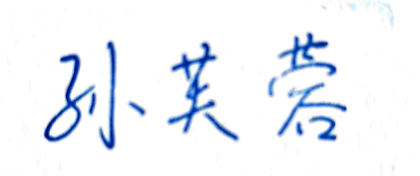 孙芙蓉